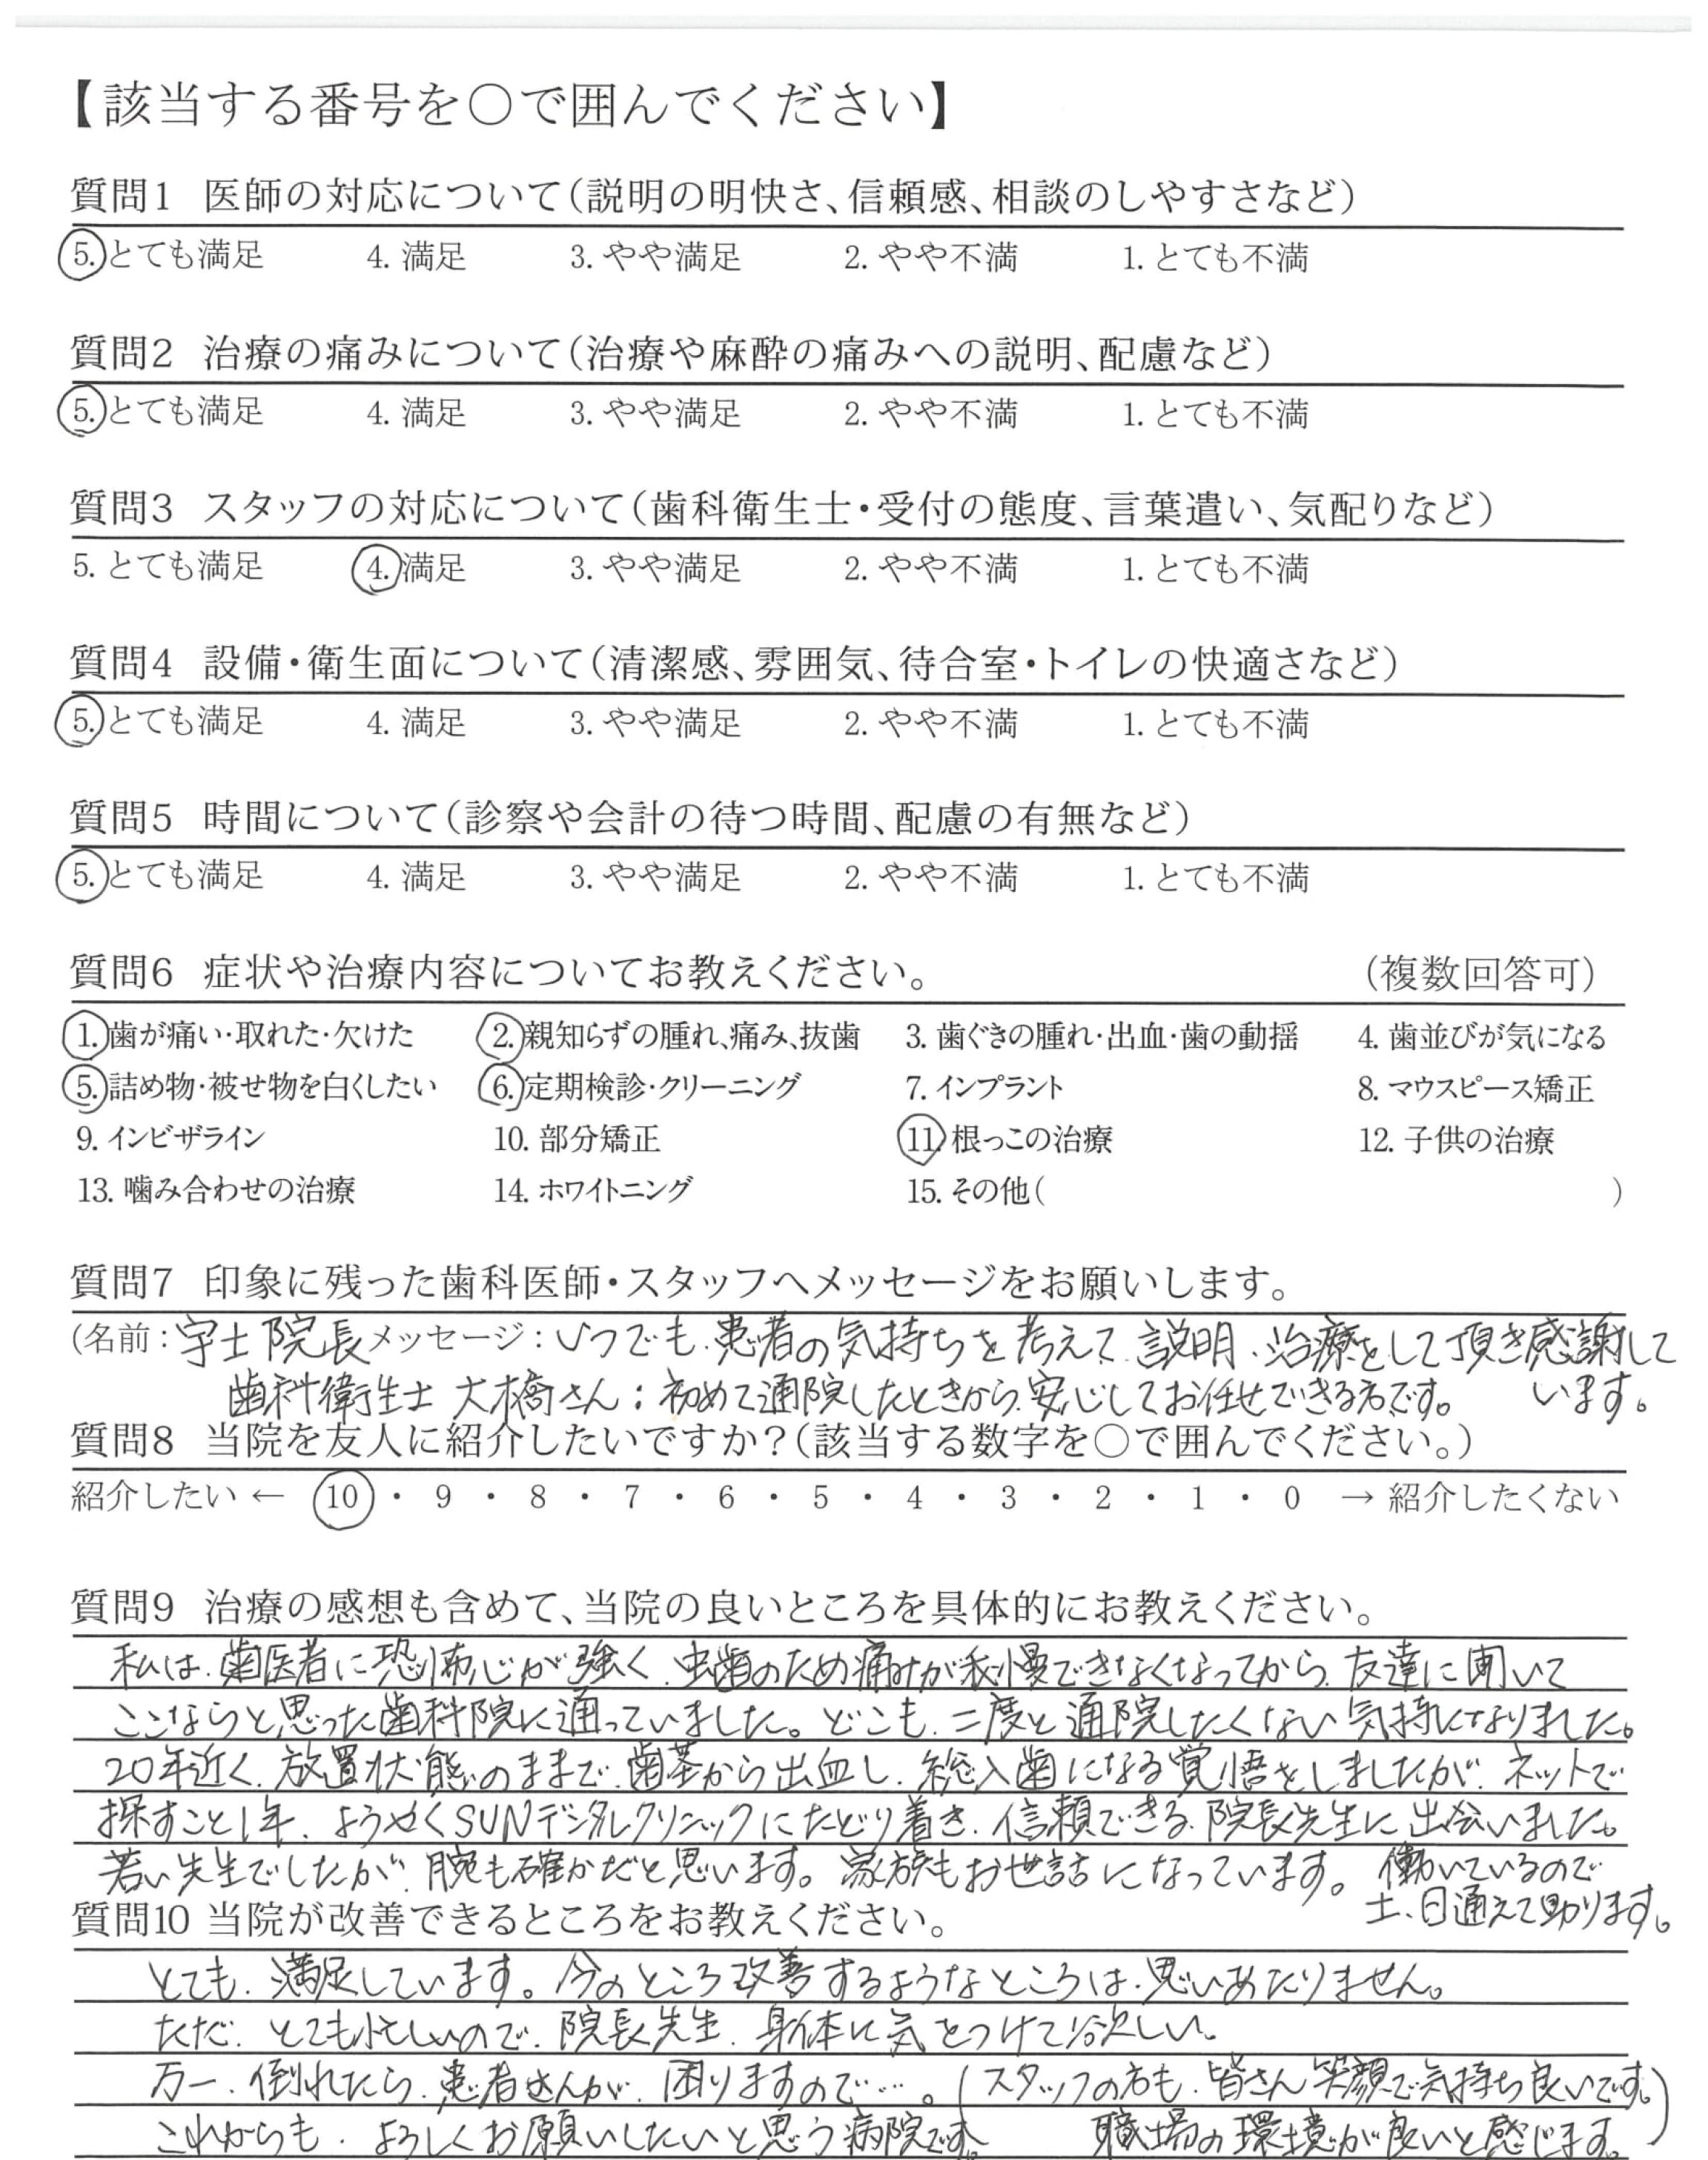 【該当する番号を○で囲んでください】
質問1 医師の対応について(説明の明快さ、信頼感、相談のしやすさなど)
5. とても満足 4. 満足 3. やや満足 2. やや不満 1. とても不満
質問2 治療の痛みについて(治療や麻酔の痛みへの説明、配慮など)
5. とても満足 4. 満足 3. やや満足 2. やや不満 1. とても不満
質問3 スタッフの対応について(歯科衛生士・受付の態度、言葉遣い、気配りなど)
5. とても満足 4. 満足 3. やや満足 2. やや不満 1. とても不満
質問4 設備・衛生面について(清潔感、雰囲気、待合室・トイレの快適さなど)
5. とても満足 4. 満足 3. やや満足 2. やや不満 1. とても不満
質問5 時間について(診察や会計の待つ時間、配慮の有無など)
5. とても満足 4. 満足 3. やや満足 2. やや不満 1. とても不満
質問6 症状や治療内容についてお教えください。 (複数回答可)
1. 歯が痛い・取れた・欠けた 2. 親知らずの腫れ、痛み、抜歯 3. 歯ぐきの腫れ・出血・歯の動揺 4. 歯並びが気になる
5. 詰め物・被せ物を白くしたい 6. 定期検診・クリーニング 7. インプラント 8. マウスピース矯正
9. インビザライン 10. 部分矯正 11. 根っこの治療 12. 子供の治療
13. 噛み合わせの治療 14. ホワイトニング 15. その他( )
質問7 印象に残った歯科医師・スタッフへメッセージをお願いします。
(名前:宇土院長 メッセージ:いつでも、患者の気持ちを考えて、説明、治療をして頂き感謝して
います。
歯科衛生士 大橋さん:初めて通院したときから、安心してお任せできる方です。
質問8 当院を友人に紹介したいですか?(該当する数字を○で囲んでください。)
紹介したい ← 10 ・ 9 ・ 8 ・ 7 ・ 6 ・ 5 ・ 4 ・ 3 ・ 2 ・ 1 ・ 0 → 紹介したくない
質問9 治療の感想も含めて、当院の良いところを具体的にお教えください。
私は、歯医者に恐怖心が強く、虫歯のため痛みが我慢できなくなってから、友達に聞いて
ここならと思った歯科院に通っていました。どこも、二度と通院したくない気持になりました。
20年近く、放置状態のままで、歯茎から出血し、総入歯になる覚悟をしましたが、ネットで
探すこと1年、ようやくSUNデジタルクリニックにたどり着き、信頼できる、院長先生に出会いました。
若い先生でしたが、腕も確かだと思います。家族もお世話になっています。 働いているので
土、日通えて助ります。
質問10 当院が改善できるところをお教えください。
とても、満足しています。今のところ改善するようなところは、思いあたりません。
ただ、とても忙しいので、院長先生、身体に気をつけて欲しい。
万一、倒れたら、患者さんが、困りますので…。(スタッフの方も、皆さん笑顔で気持ち良いです。
これからも、よろしくお願いしたいと思う病院です。 職場の環境が良いと感じます。)